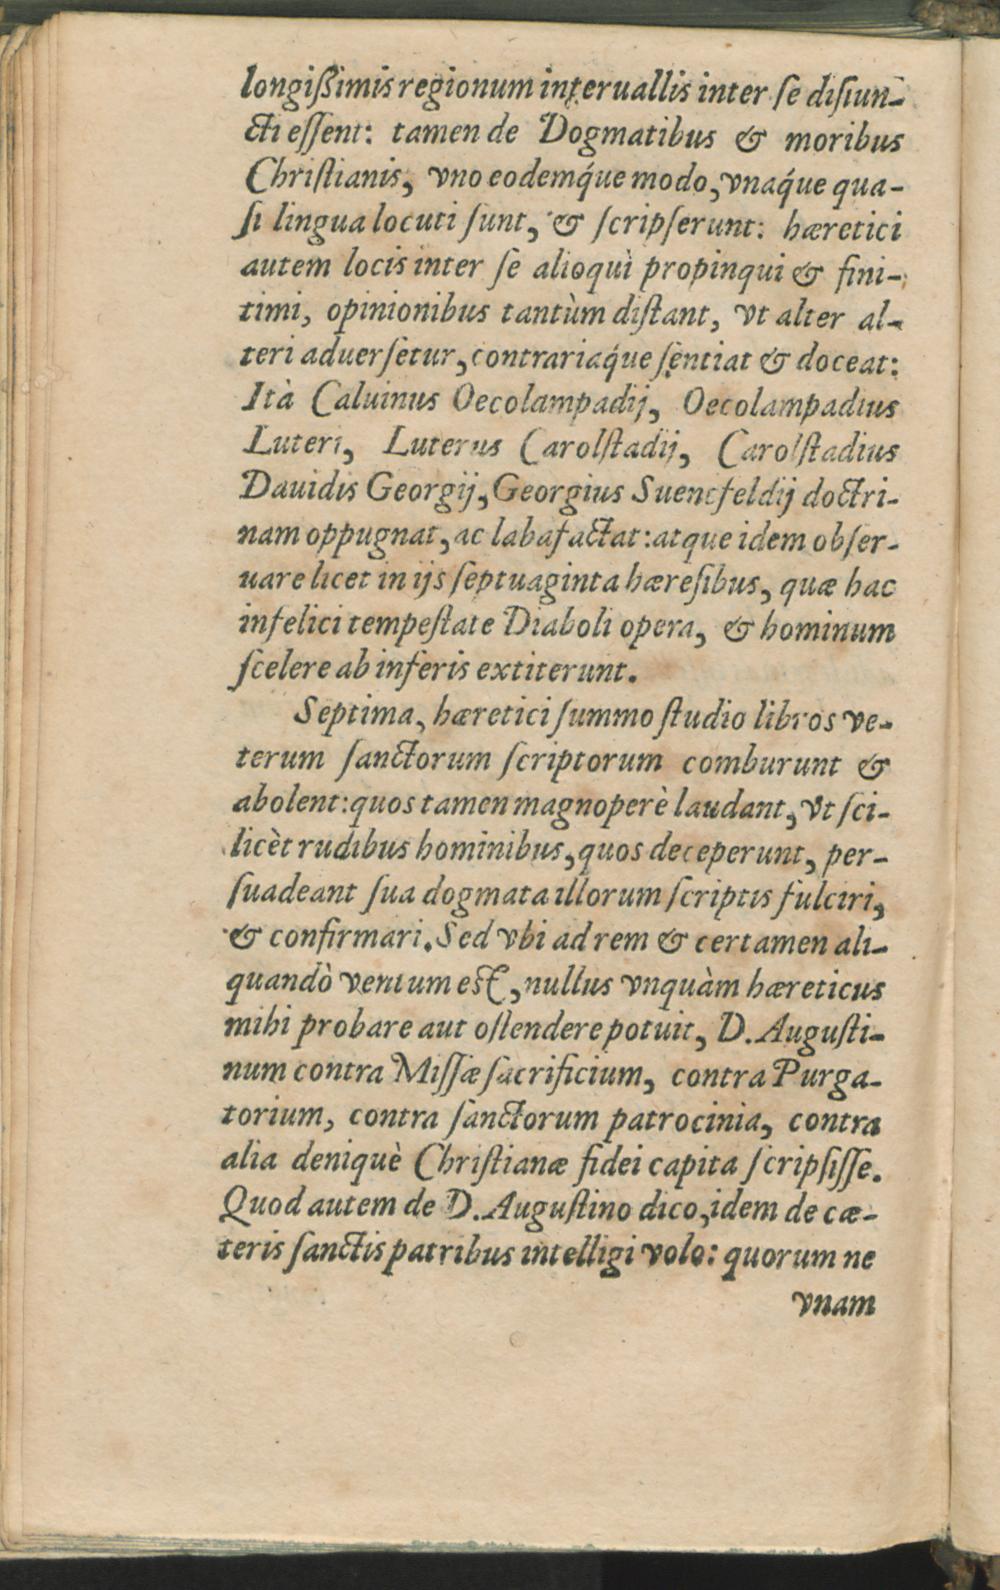 longißimis regionum interuallis inter ſe diſiun-
cti eſſent: tamen de Dogmatibus & moribus
Chriſtianis, vno eodemq́ue modo, vnaq́ue qua-
ſi lingua locuti ſunt, & ſcripſerunt: hæretici
autem locis inter ſe alioquì propinqui & fini-
timi, opinionibus tantùm diſtant, vt alter al-
teri aduerſetur, contrariaq́ue ſentiat & doceat:
Ità Caluinus Oecolampadij, Oecolampadius
Luteri, Luterus Carolſtadij, Carolſtadius
Dauidis Georgij, Georgius Suencfeldij doctri-
nam oppugnat, ac labafactat: atque idem obſer-
uare licet in ijs ſeptuaginta hæreſibus, quæ hac
infelici tempeſtate Diaboli opera, & hominum
ſcelere ab inferis extiterunt.
Septima, hæretici ſummo ſtudio libros ve-
terum ſanctorum ſcriptorum comburunt &
abolent: quos tamen magnoperè laudant, vt ſci-
licèt rudibus hominibus, quos deceperunt, per-
ſuadeant ſua dogmata illorum ſcriptis fulciri,
& confirmari. Sed vbi ad rem & certamen ali-
quandò ventum est, nullus vnquàm hæreticus
mihi probare aut oſtendere potuit, D. Auguſti-
num contra Miſſæ ſacrificium, contra Purga-
torium, contra ſanctorum patrocinia, contra
alia deniquè Chriſtianæ fidei capita ſcripſiſſe.
Quod autem de D. Auguſtino dico, idem de cæ-
teris ſanctis patribus intelligi volo: quorum ne
vnam